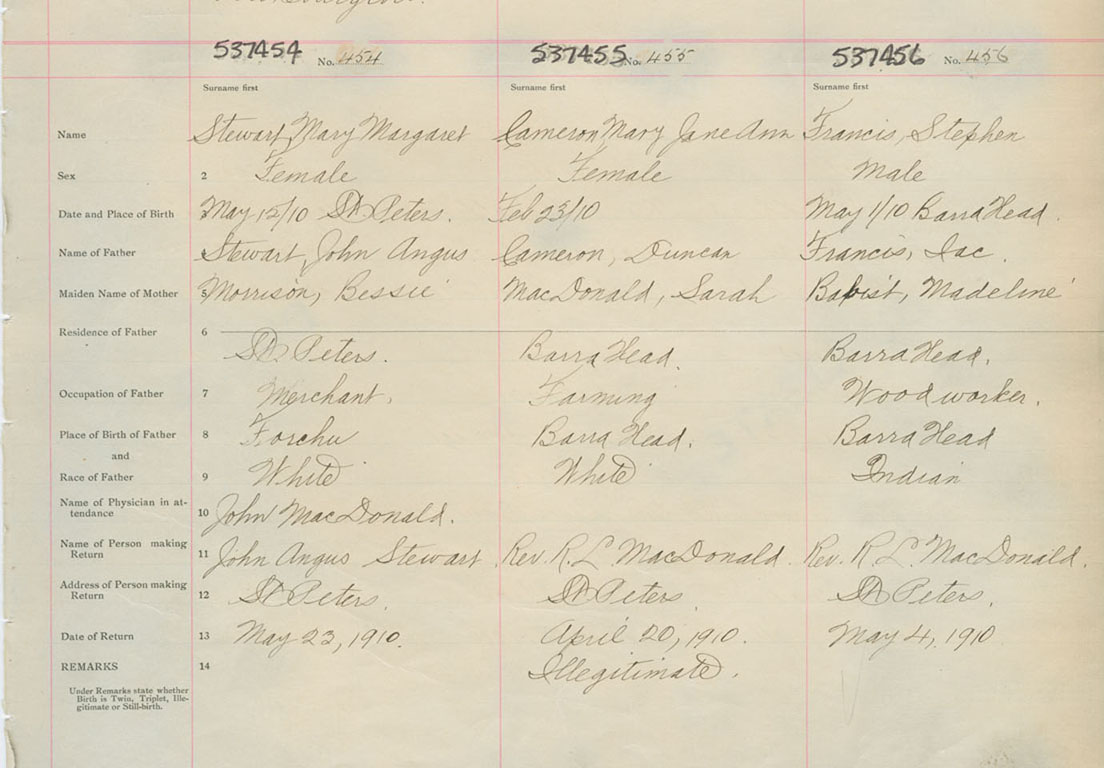 537454 No. 454 537455 No. 455 537456 No. 456
Surname first Surname first Surname first
Name Stewart, Mary Margaret Cameron Mary Jane Ann Francis, Stephen
Sex 2 Female Female Male
Date and Place of Birth May 12/10 St Peters. Feb 23/10 May 1/10 Barra Head.
Name of Father Stewart, John Angus Cameron, Duncan Francis, Isac.
Maiden Name of Mother 5 Morrison, Bessie MacDonald, Sarah Babist, Madeline
Residence of Father 6 St Peters. Barra Head. Barra Head.
Occupation of Father 7 Merchant. Farming Wood worker.
Place of Birth of Father 8 Forchu Barra Head. Barra Head
and
Race of Father 9 White White Indian
Name of Physician in at-
tendance 10 John MacDonald.
Name of Person making
Return 11 John Angus Stewart Rev. R. L. MacDonald. Rev. R L. MacDonald.
Address of Person making
Return 12 St Peters. St Peters. St Peters.
Date of Return 13 May 23, 1910. April 20, 1910. May 4, 1910
REMARKS 14 Illegitimate.
Under Remarks state whether
Birth is Twin, Triplet, Ille-
gitimate or Still-birth.